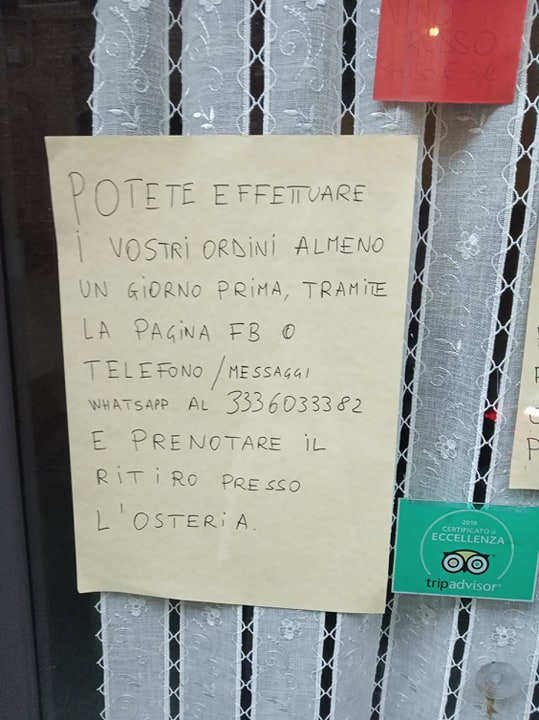 VINO
ROSSO
POTETE EFFETTUARE
I VOSTRI ORDINI ALMENO
UN GIORNO PRIMA, TRAMITE
LA PAGINA FB O
TELEFONO / MESSAGGI
WHATSAPP AL 3336033382
E PRENOTARE IL
RITIRO PRESSO
L'OSTERIA.
2018
CERTIFICATO di
ECCELLENZA
tripadvisor